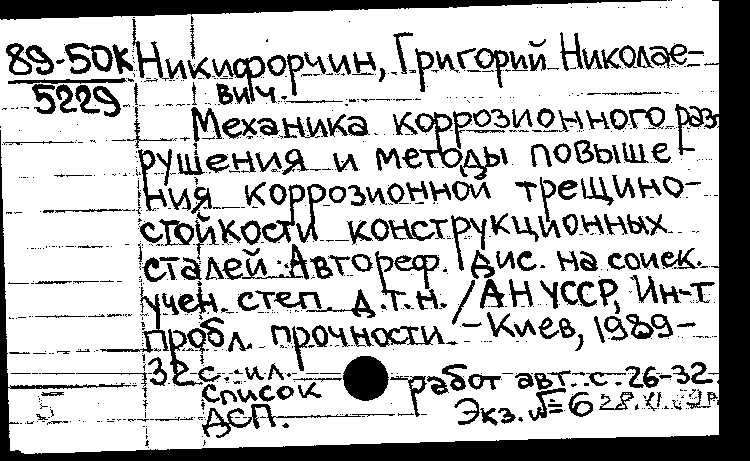 89-50К Никифорчин, Григорий Николае-
5229 вич.
Механика коррозионного раз-
рушения и методы повыше-
ния коррозионной трещино-
стойкости конструкционных
сталей: Автореф. дис. на соиск.
учен. степ. д.т.н. / АН УССР, Ин-т
пробл. прочности. - Киев, 1989 -
32 с.: ил.
Список работ авт.: с. 26-32.
ДСП. Экз. №6 28.XI.89
5